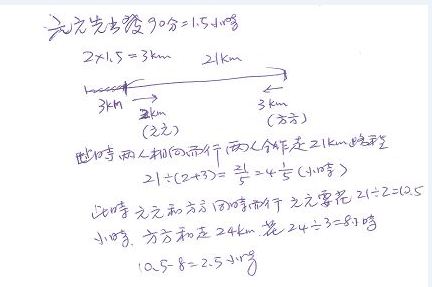 元元先出發90分=1.5小時
2×1.5=3km 21km
3km 2km 3km
(元元) (方方)
此時兩人相向而行兩人合作走21km路程
21÷(2+3)=21/5=4 1/5(小時)
此時元元和方方同時而行元元要花21÷2=10.5
小時,方方和走24km花24÷3=8小時
10.5-8=2.5小時